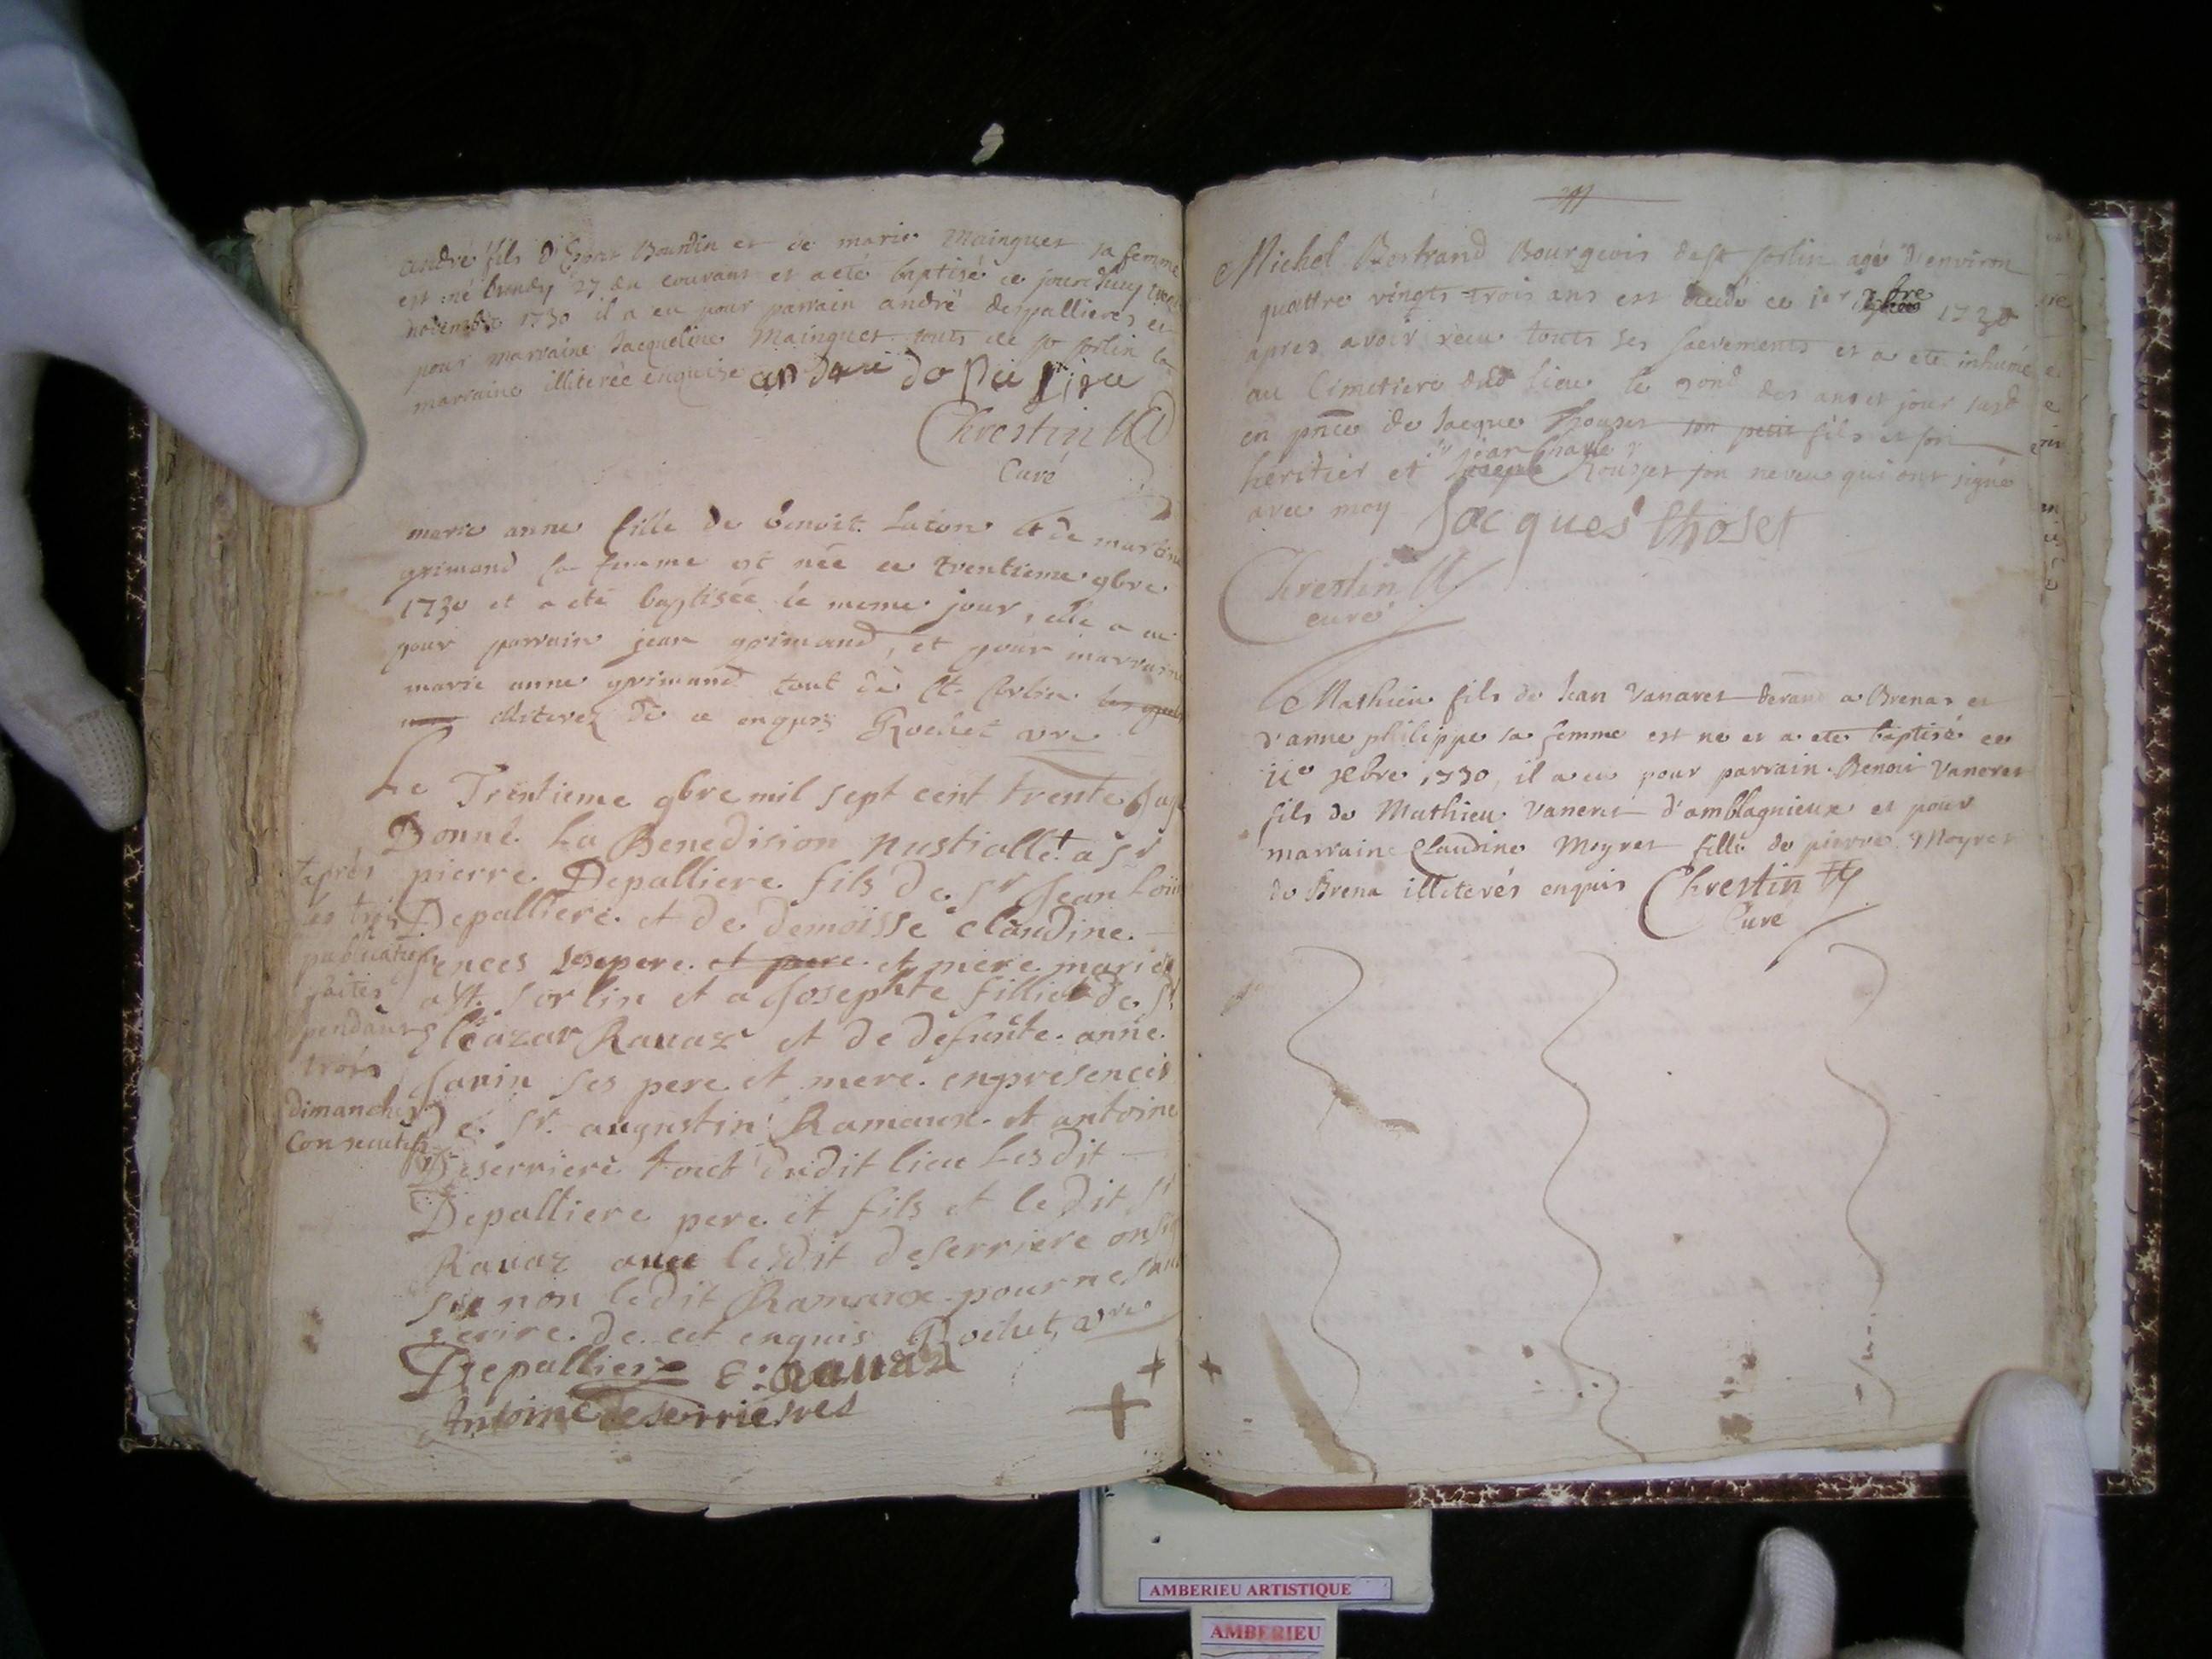 andré fils D Bourdin et de marie Mainguet sa femme
est né 27 du courant et a eté baptisé ce jourdhuy
novembre 1730 il a eu pour parrain andré despallieres et
pour marraine Jacqueline Mainguet touts de st sorlin la
marraine illiterée enquise
Chrestin
Curé
marie anne fille de benoit Laton et de martine
grimand sa femme est née ce trentieme 9bre
1730 et a eté baptisée le meme jour, elle a eu
pour parrain jean grimand, et pour marraine
marie anne grimand tout de St. Sorlin
illiterez de ce enquis Rochet vre
Le Trentieme 9bre mil sept cent trente Jay
Donné La Benedision nustialle + a Sr
pierre Depalliere fils de Sr Jean Loui
Depalliere et de demoisse claudine
ences ses pere et pere et mere mariés
a St. Sorlin et a Josephte fillie de Sr
Eléazar Rauaz et de defunte anne
Janin ses pere et mere en presences
De Sr. augustin Ramaux et antoine
Deserriere tout dudit lieu Lesdit
Depalliere pere et fils et ledit Sr
Rauaz auec lesdit deserriere on
non ledit Ramaux pour ne
ecrire de cet enquis Rochet, vre
+ après
les trois
publications
faites
pendant
trois
dimanches
Consecutifs
Depalliere E: Rauaz
Antoine deserrieres
Michel Bertrand Bourgeois de st sorlin agé d'environ
quattre vingts trois ans est decedé ce 1er bre 1730
apres avoir receu touts ses sacrements et a eté inhumé
au Cimetiere dud Lieu le 2ond des an et jour susd
en pnce de Jacque Thouset son petit fils et son
heritier et Joseph jean Charle Thouset son neveu qui ont signé
avec moy Jacques thoset
Chrestin
curé
Mathieu fils de Jean Vanaret a Brenas et
d'anne philippe sa femme est né et a eté baptisé ce
11e xbre 1730, il a eu pour parrain Benoit Vaneret
fils de Mathieu Vaneret d'amblagnieux et pour
marraine Claudine Moyret fille de pierre Moyret
de Brena illiterés enquis Chrestin
Curé
AMBERIEU ARTISTIQUE
AMBERIEU